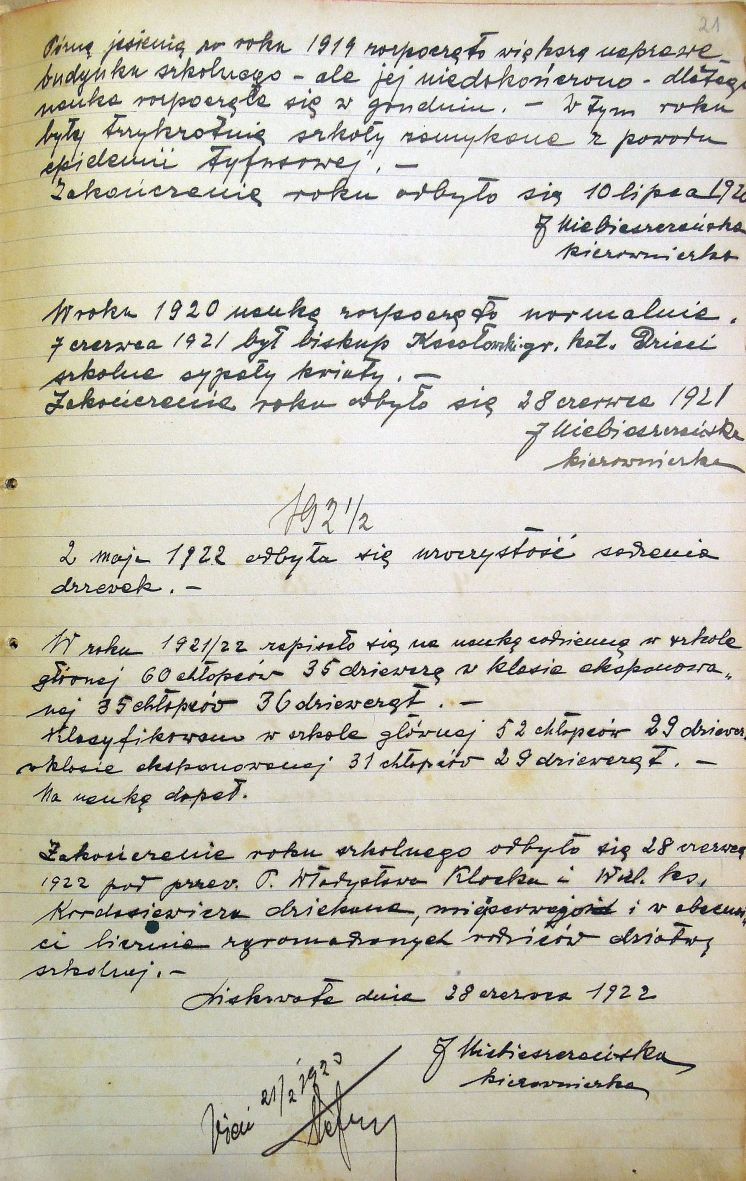 21
Późną jesienią w roku 1919 rozpoczęto większą naprawę
budynku szkolnego – ale jej niedokończono – dlatego
nauka rozpoczęła się w grudniu. – W tym roku
były trzykrotnie szkoły zamykane z powodu
epidemii tyfusowej. –
Zakończenie roku odbyło się 10 lipca 1920
J Niebieszczańska
kierowniczka
W roku 1920 naukę rozpoczęto normalnie.
7 czerwca 1921 był biskup gr. kat. Dzieci
szkolne sypały kwiaty. –
Zakończenie roku odbyło się 28 czerwca 1921
J Niebieszczańska
kierowniczka
1921/2
2 maja 1922 odbyła się uroczystość sadzenia
drzewek. –
W roku 1921/22 zapisało się na naukę codzienną w szkole
głównej 60 chłopców 35 dziewczą w klasie eksponowa„
nej 35 chłopców 36 dziewcząt. –
Klasyfikowano w szkole głównej 52 chłopców 29 dziewcz
w klasie eksponowanej 31 chłopców 29 dziewcząt. –
Na naukę dopeł.
Zakończenie roku szkolnego odbyło się 28 czerwca
1922 pod przew. P. Władysława Klocka i Wiel. ks.
Kordasiewicza dziekana, i w obecnoś„
ci licznie zgromadzonych rodziców dziatwy
szkolnej. –
Liskowate dnia 28 czerwca 1922
J Niebieszczańska
kierowniczka
21/2 1923